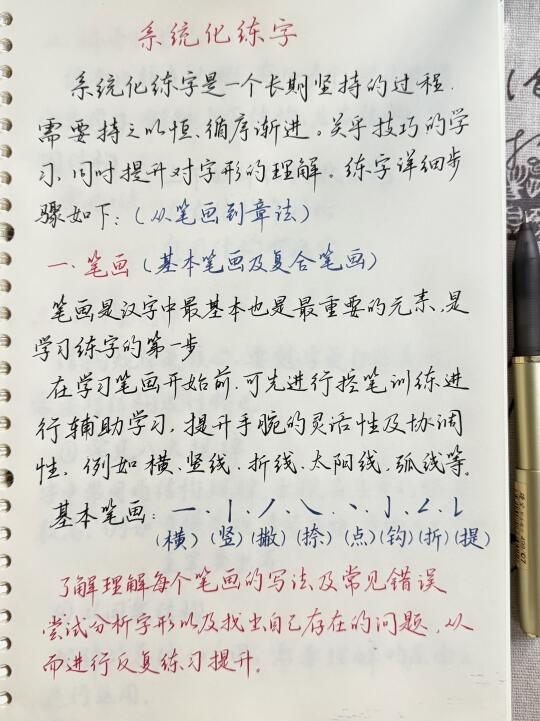 系统化练字
系统化练字是一个长期坚持的过程.
需要持之以恒、循序渐进。关乎技巧的学
习,同时提升对字形的理解。练字详细步
骤如下:(从笔画到章法)
一、笔画(基本笔画及复合笔画)
笔画是汉字中最基本也是最重要的元素,是
学习练字的第一步
在学习笔画开始前.可先进行控笔训练进
行辅助学习,提升手腕的灵活性及协调
性。例如横、竖线、折线、太阳线,弧线等。
基本笔画:
(横)(竖)(撇)(捺)(点)(钩)(折)(提)
了解理解每个笔画的写法及常见错误
尝试分析字形以及找出自己存在的问题,从
而进行反复练习提升。